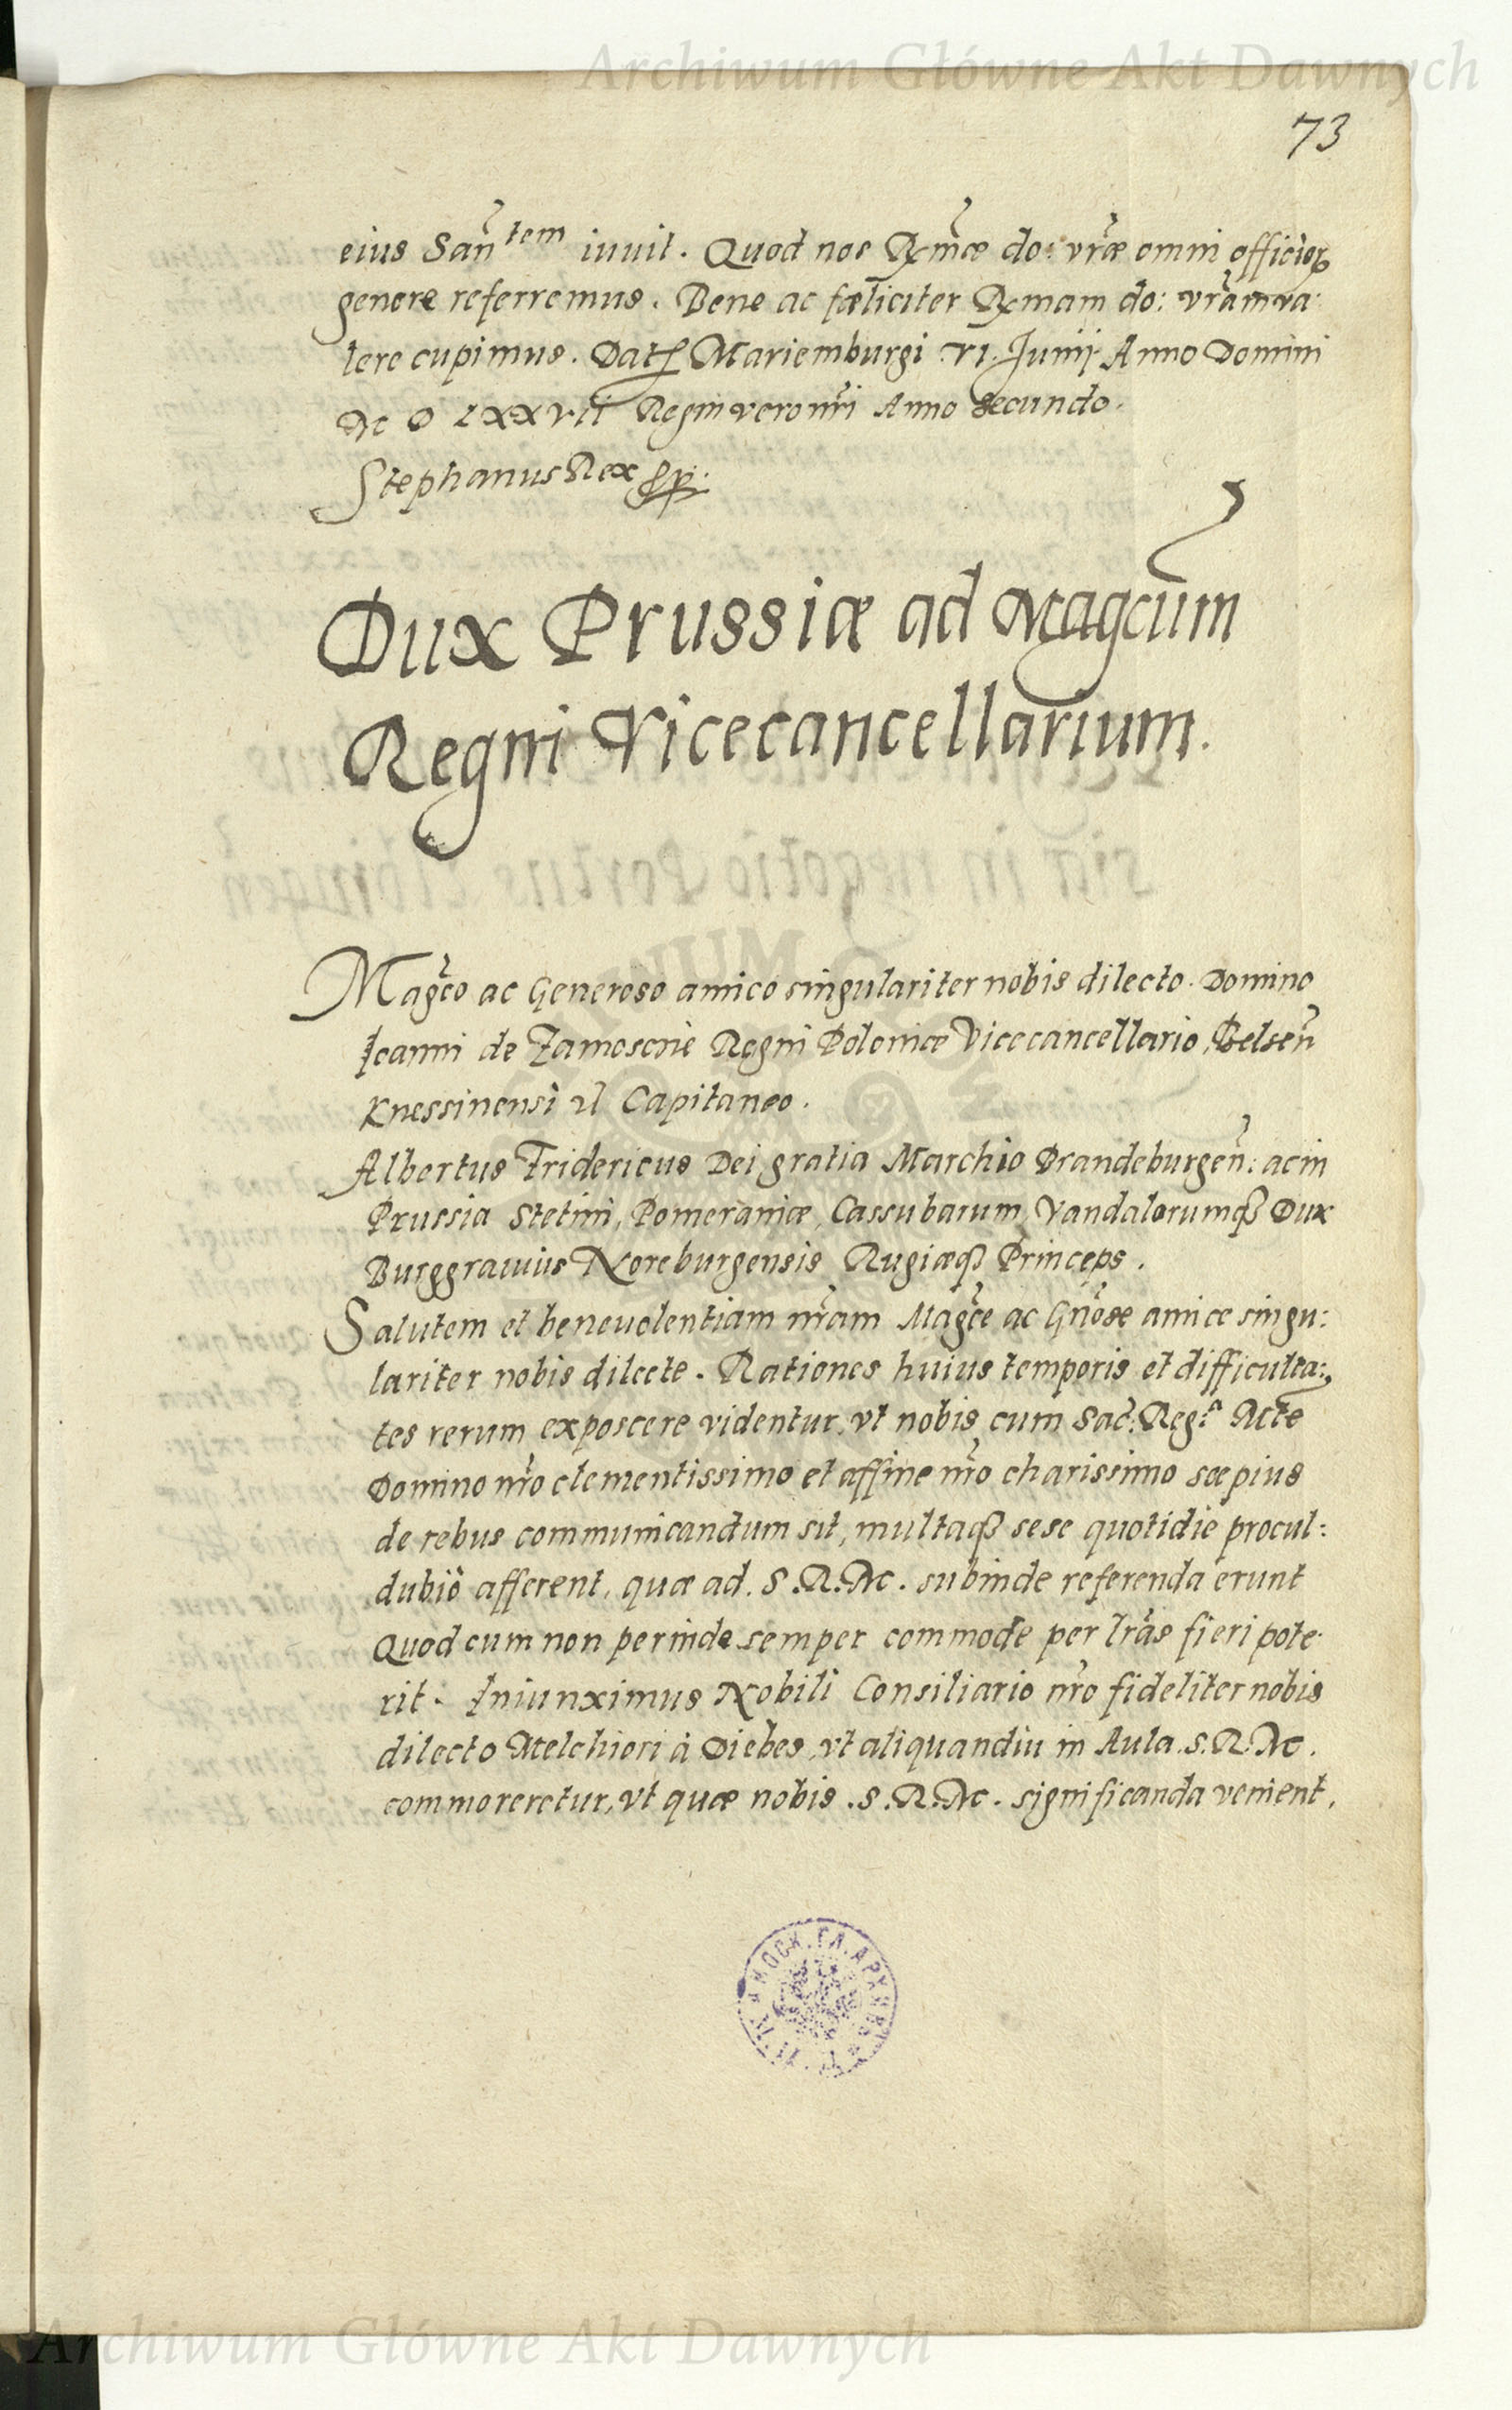 Archiwum Główne Akt Dawnych
73
eius San̄tem iuuit. Quod nos Rx̄mæ do: vr̄æ omni officioꝝ
genere referremus. Bene ac fæliciter Rxmam do: vr̄am va:
lere cupimus. Datꝭ Mariemburgi VI. Junij Anno Domini
M D LXXVII Regni vero nr̄i Anno secundo.
Stephanus Rex
Dux Prussiæ ad Magcum̄
Regni Vicecancellarium.
Maḡco ac Generoso amico singulariter nobis dilecto. Domino
Ioanni de Zamoscie Regni Poloniæ Vicecancellario, Belsen̄
Knessinensi Capitaneo.
Albertus Fridericus Dei gratia Marchio Brandeburgen̄: ac in
Prussia Stetini, Pomeraniæ, Cassubarum, Vandalorumqꝫ Dux
Burggrauius Noreburgensis Rugiæqꝫ Princeps.
Salutem et beneuolentiam nr̄am Maḡce ac Gn̄ose amice singu:
lariter nobis dilecte. Rationes huius temporis et difficulta:
tes rerum exposcere videntur, vt nobis cum Sac: Reg: Mte
Domino nr̄o clementissimo et affine nr̄o charissimo sæpius
de rebus communicandum sit, multaqꝫ sese quotidie procul:
dubiò afferent, quæ ad. S.R.M. subinde referenda erunt
Quod cum non perinde semper commode per lr̄as fieri pote:
rit. Iniunximus Nobili Consiliario nr̄o fideliter nobis
dilecto Melchiori à Diebes, vt aliquandiu in Aula.S.R.M.
commoreretur, vt quæ nobis .S.R.M. significanda venient,
МОСК. ГЛ. АРХИВ
Archiwum Główne Akt Dawnych